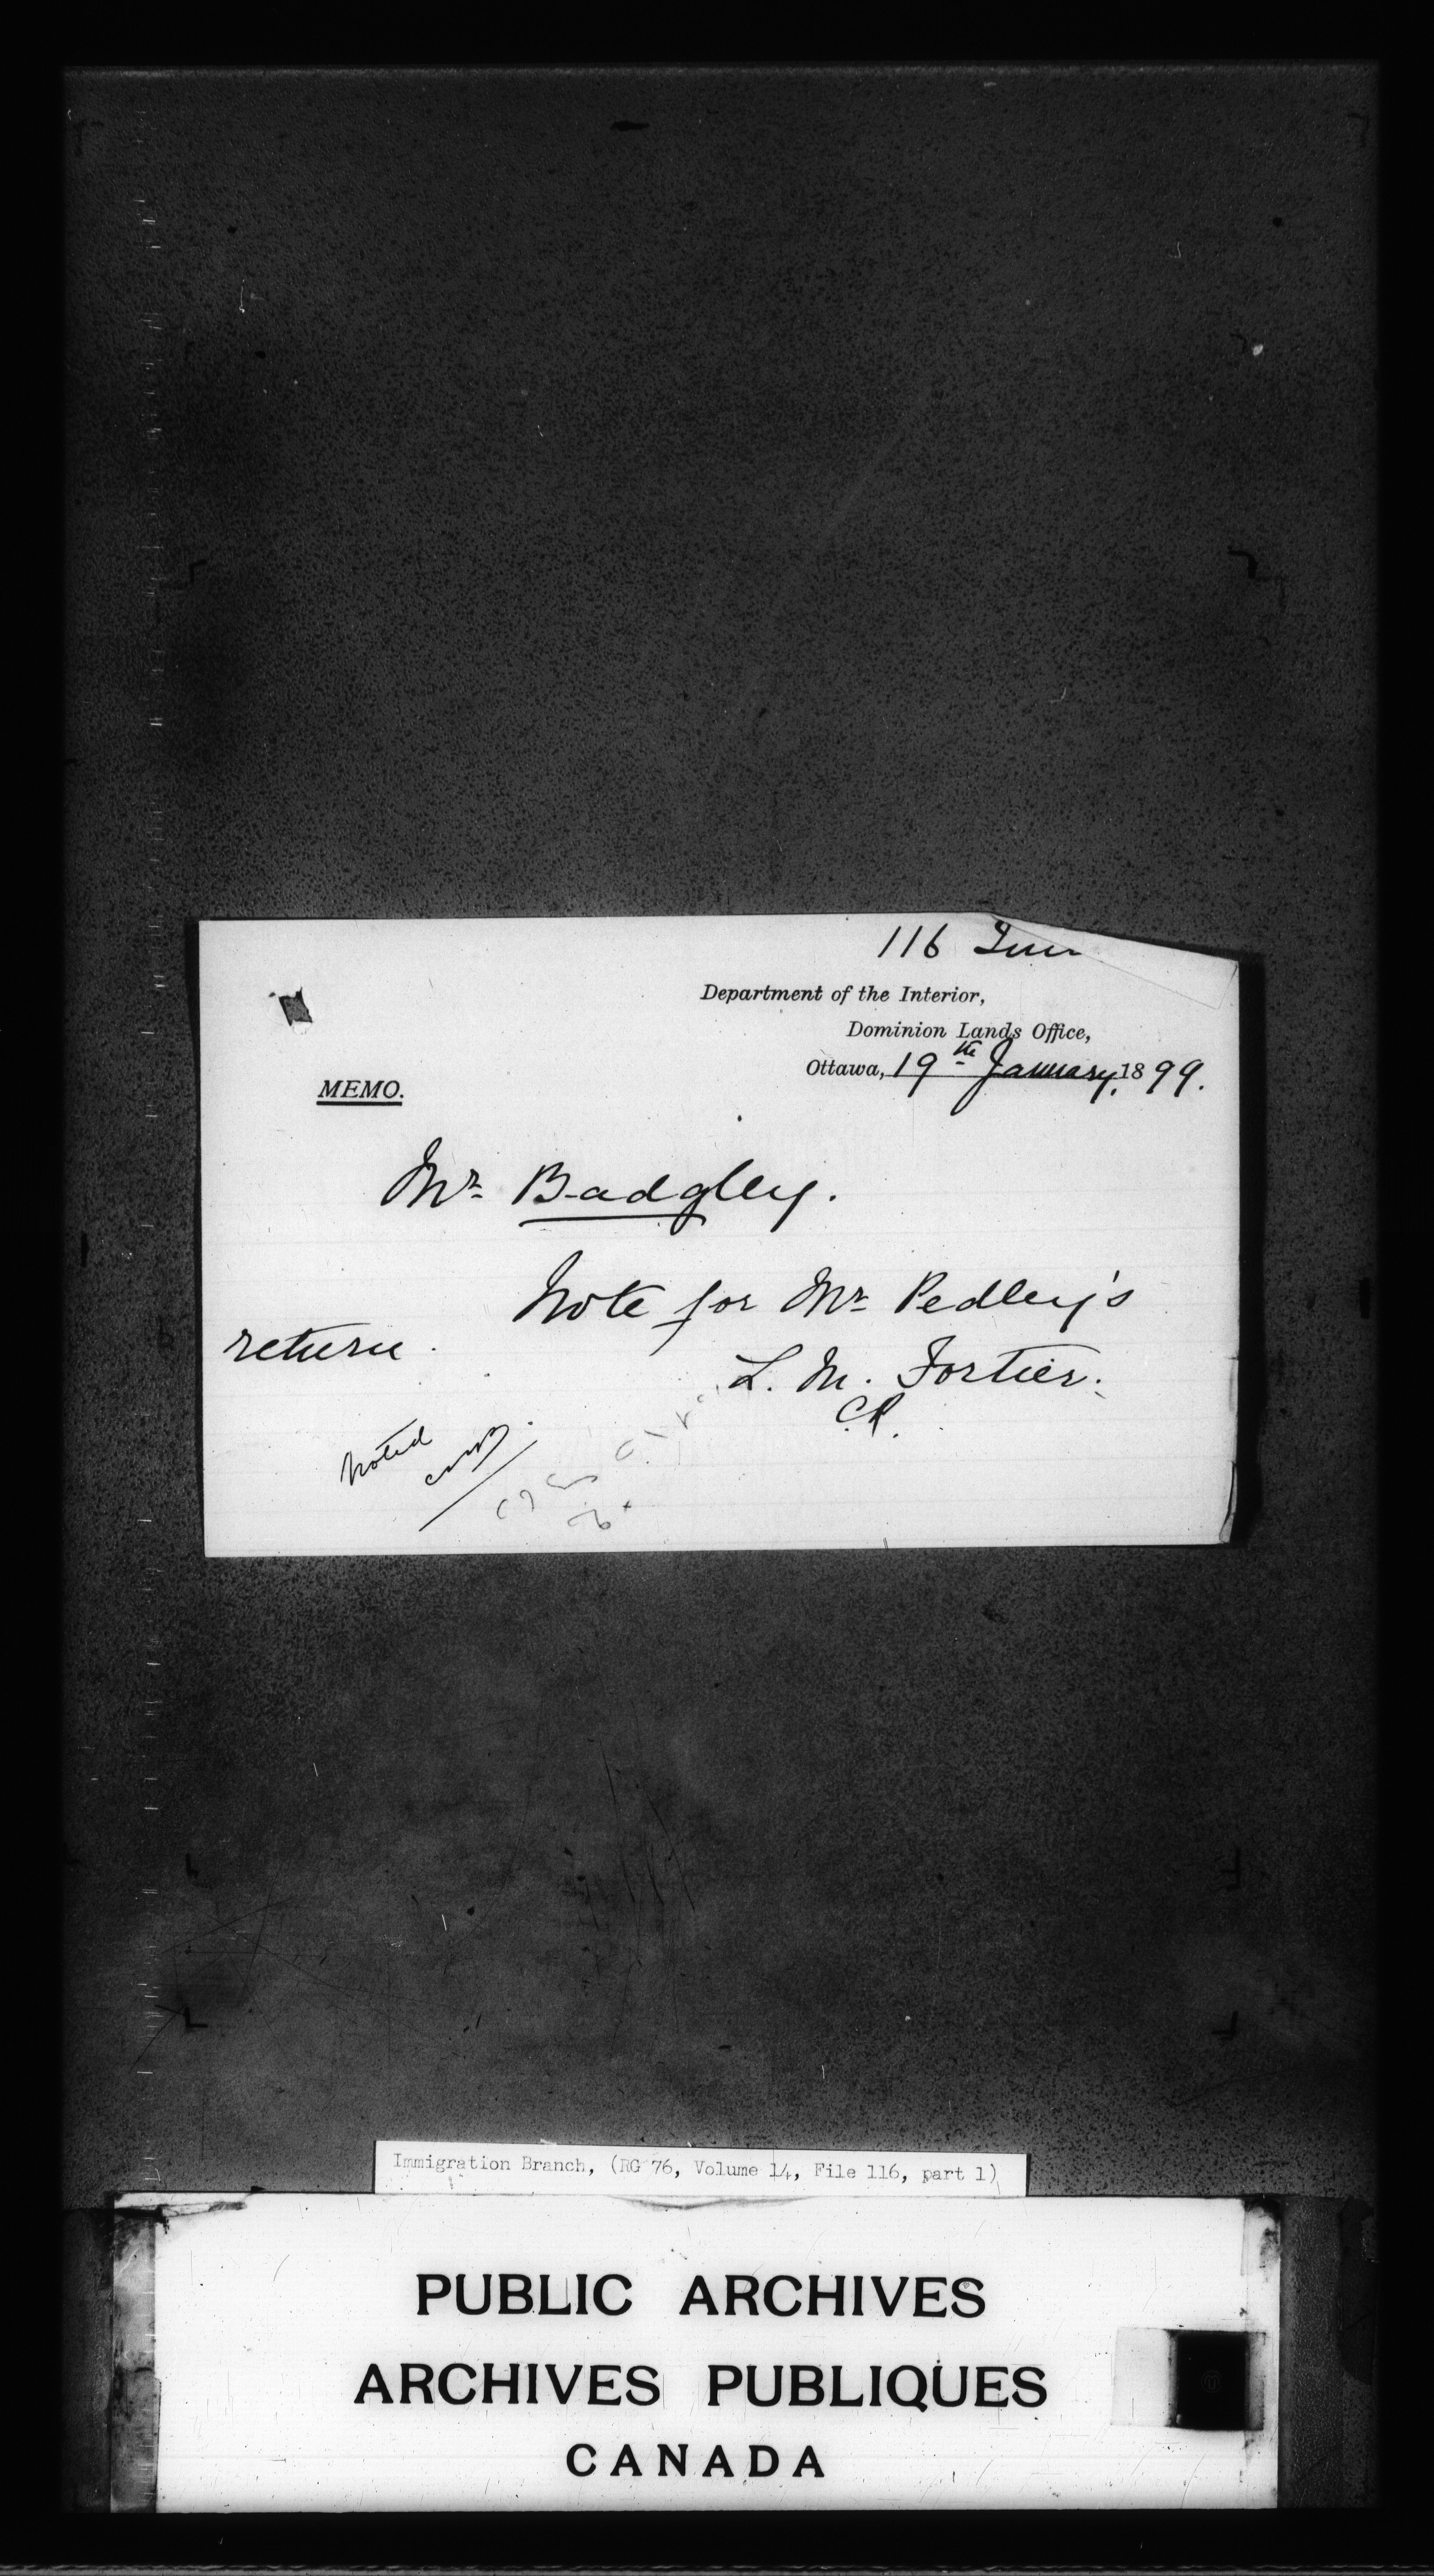 116 Imm
Department of the Interior,
Dominion Lands Office,
Ottawa, 19th January, 1899.
MEMO.
Mr. Badgley.
Note for Mr. Pedley's
return.
L. M. Fortier.
CR.
Noted
Immigration Branch, (RG 76, Volume 14, File 116, part 1)
PUBLIC ARCHIVES
ARCHIVES PUBLIQUES
CANADA